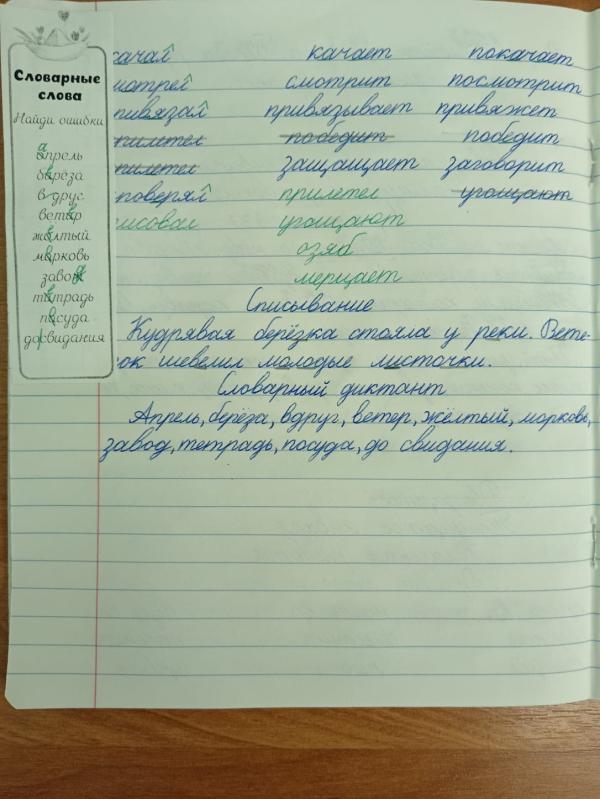 Словарные
слова
Найди ошибки
апрель
берёза
вдруг
ветер
жёлтый
морковь
завод
тетрадь
посуда
до свидания
качает покачает
смотрит посмотрит
привязывает привяжет
победит победит
защищает заговорит
прилетел угощают
угощают
озяб
мерцает
Списывание
Кудрявая берёзка стояла у реки. Вете-
рок шевелил молодые листочки.
Словарный диктант
Апрель, берёза, вдруг, ветер, жёлтый, морковь,
завод, тетрадь, посуда, до свидания.